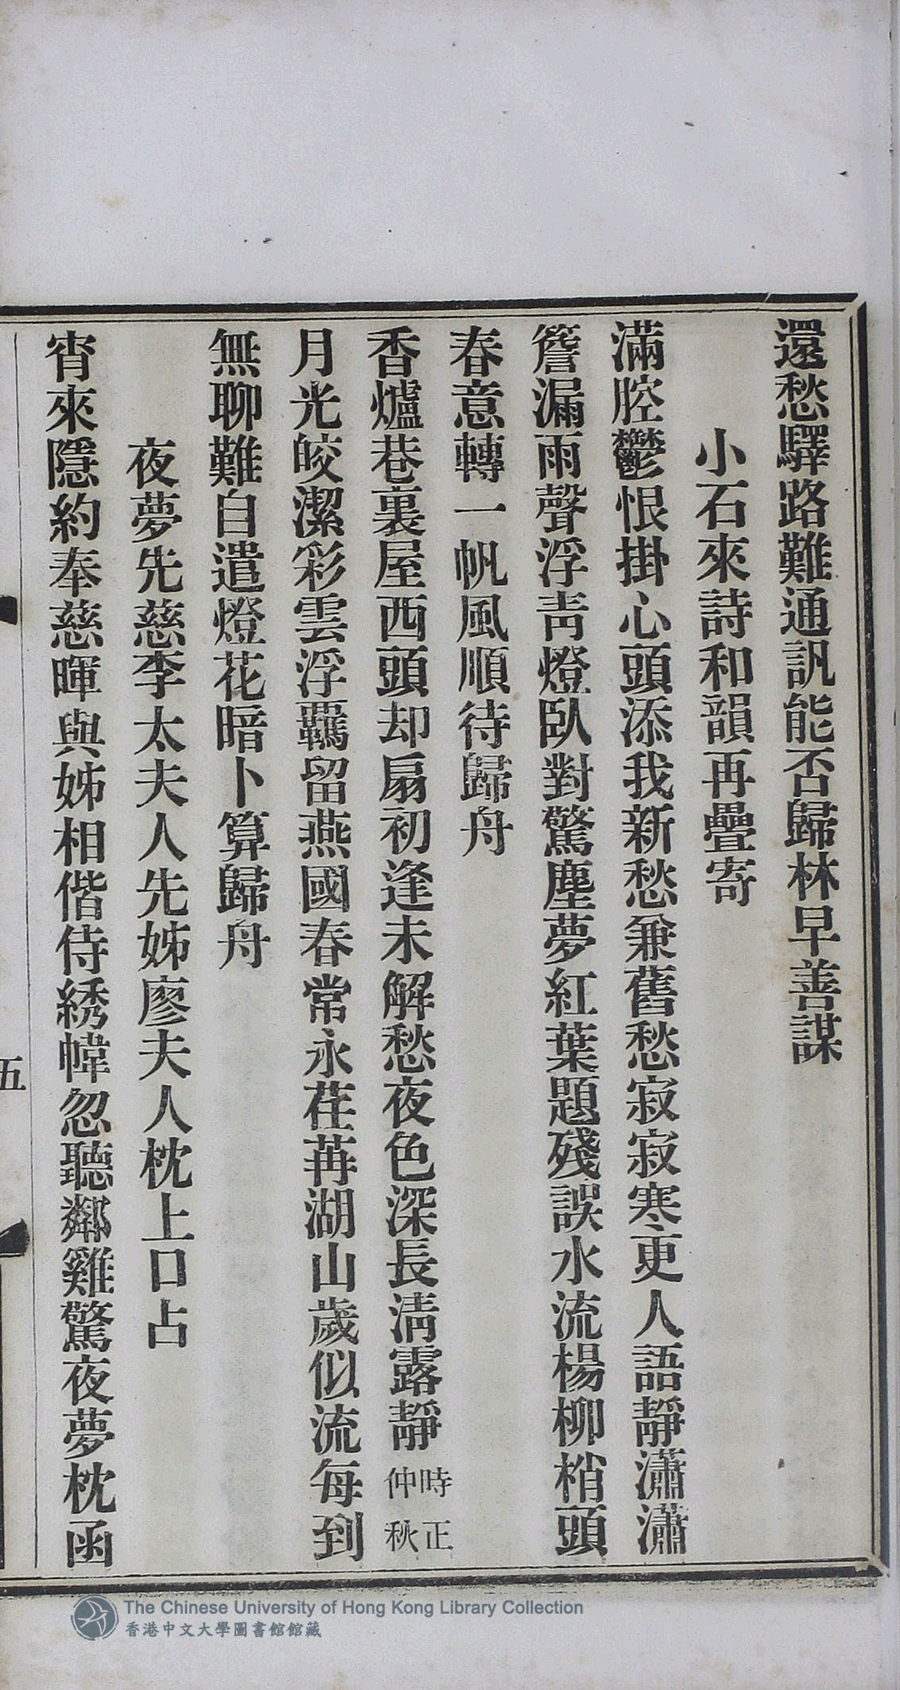 還愁驛路難通訊能否歸林早善謀
小石來詩和韻再疊寄
滿腔鬱恨掛心頭添我新愁兼舊愁寂寂寒更人語靜瀟瀟
簷漏雨聲浮青燈臥對驚塵夢紅葉題殘誤水流楊柳梢頭
春意轉一帆風順待歸舟
香爐巷裏屋西頭却扇初逢未解愁夜色深長清露靜時正仲秋
月光皎潔彩雲浮羈留燕國春常永荏苒湖山歲似流每到
無聊難自遣燈花暗卜算歸舟
夜夢先慈李太夫人先姊廖夫人枕上口占
宵來隱約奉慈暉與姊相偕侍綉幃忽聽鄰雞驚夜夢枕函
五
The Chinese University of Hong Kong Library Collection
香港中文大學圖書館館藏